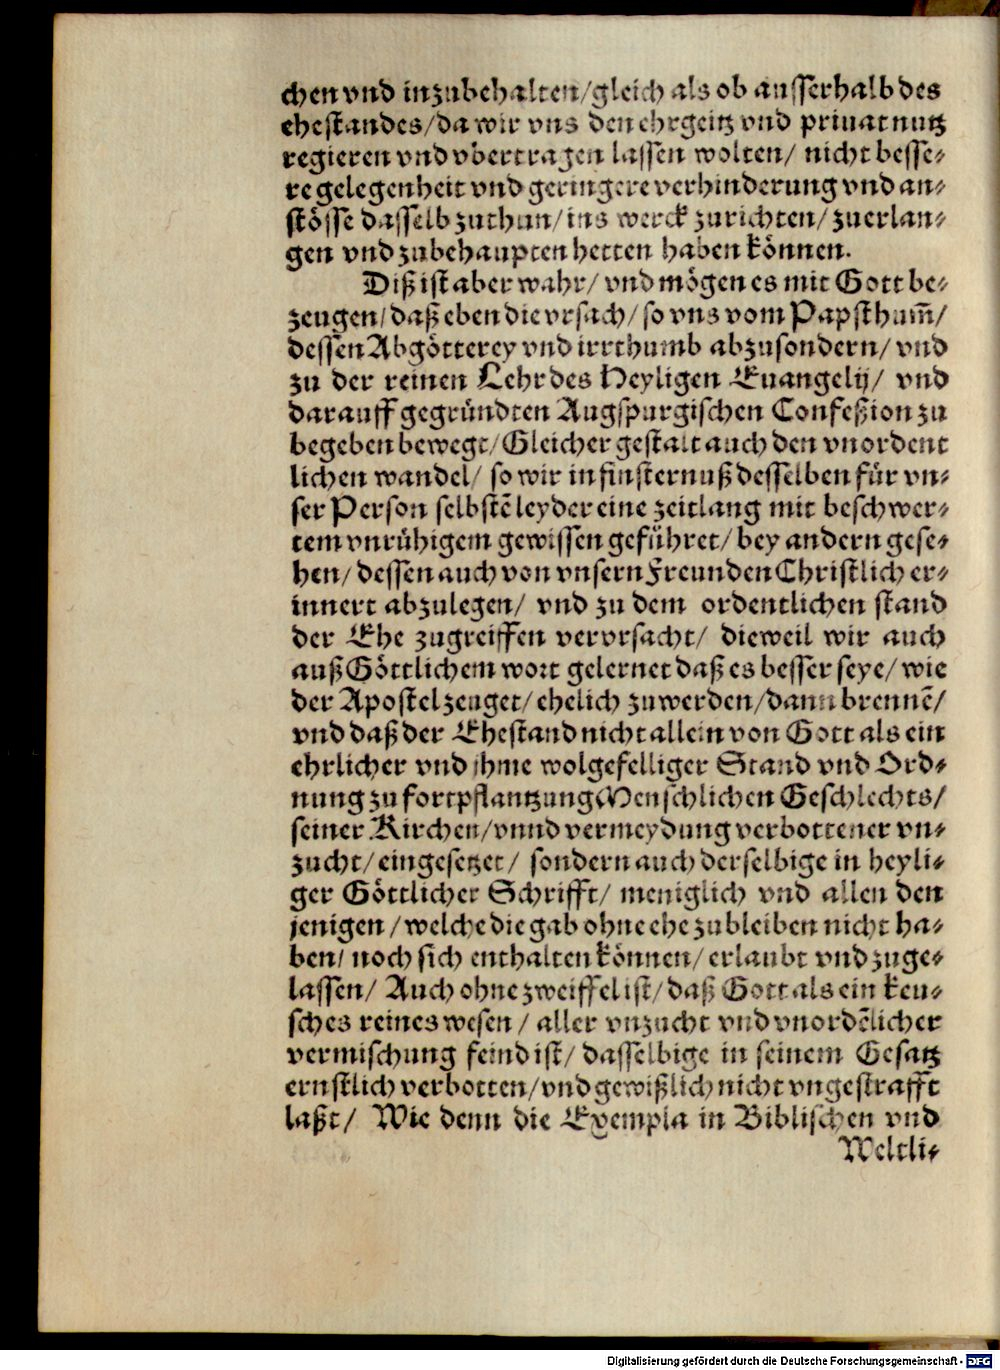 chen vnd inzubehalten/gleich als ob ausserhalb des
ehestandes/da wir vns den ehrgeitz vnd priuat nutz
regieren vnd vbertragen lassen wolten/ nicht besse-
re gelegenheit vnd geringere verhinderung vnd an-
stösse dasselb zuthun/ins werck zurichten/zuerlan-
gen vnd zubehaupten hetten haben können.
Diß ist aber wahr/ vnd mögen es mit Gott be-
zeugen/daß eben die vrsach/ so vns vom Papsthum̄/
dessen Abgötterey vnd irrthumb abzusondern/ vnd
zu der reinen Lehr des Heyligen Euangelij/ vnd
darauff gegründten Augspurgischen Confeßion zu
begeben bewegt/Gleicher gestalt auch den vnordent
lichen wandel/ so wir in finsternuß desselben für vn-
ser Person selbstē leyder eine zeitlang mit beschwer-
tem vnrühigem gewissen geführet/bey andern gese-
hen/dessen auch von vnsern Freunden Christlich er-
innert abzulegen/ vnd zu dem ordentlichen stand
der Ehe zugreiffen vervrsacht/ dieweil wir auch
auß Göttlichem wort gelernet daß es besser seye/ wie
der Apostel zeuget/ehelich zuwerden/dann brennē/
vnd daß der Ehestand nicht allein von Gott als ein
ehrlicher vnd jhme wolgefelliger Stand vnd Ord-
nung zu fortpflantzung Menschlichen Geschlechts/
seiner Kirchen/vnnd vermeydung verbottener vn-
zucht/eingesetzet/ sondern auch derselbige in heyli-
ger Göttlicher Schrifft/ meniglich vnd allen den
jenigen/welche die gab ohne ehe zubleiben nicht ha-
ben/ noch sich enthalten können/erlaubt vnd zuge-
lassen/ Auch ohne zweiffel ist/daß Gott als ein keu-
sches reines wesen/ aller vnzucht vnd vnordēlicher
vermischung feind ist/ dasselbige in seinem Gesatz
ernstlich verbotten/vnd gewißlich nicht vngestrafft
laßt/ Wie denn die Exempla in Biblischen vnd
Weltli-
Digitalisierung gefördert durch die Deutsche Forschungsgemeinschaft - DFG